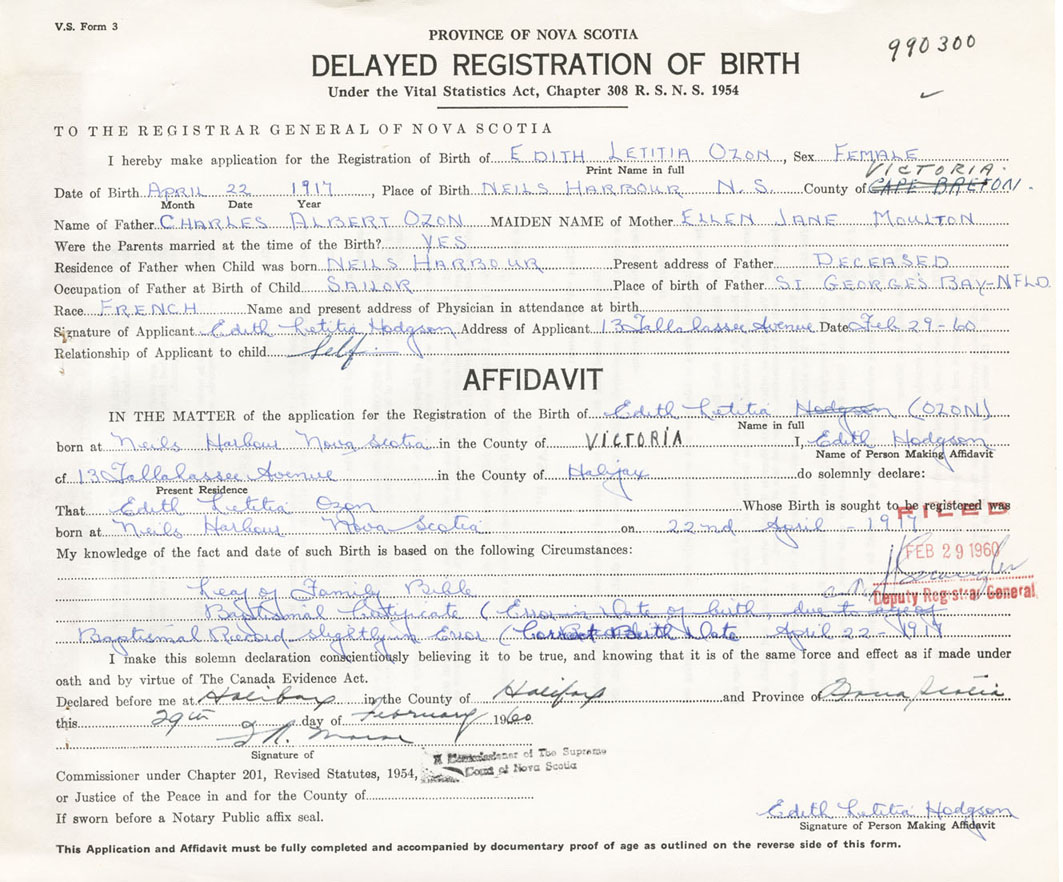 V.S. Form 3
PROVINCE OF NOVA SCOTIA
990300
DELAYED REGISTRATION OF BIRTH
Under the Vital Statistics Act, Chapter 308 R. S. N. S. 1954
TO THE REGISTRAR GENERAL OF NOVA SCOTIA
I hereby make application for the Registration of Birth of EDITH LETITIA OZON, Sex FEMALE
Print Name in full
VICTORIA.
Date of Birth APRIL 22 1917, Place of Birth NEILS HARBOUR N.S. County of CAPE BRETON.
Month Date Year
Name of Father CHARLES ALBERT OZON MAIDEN NAME of Mother ELLEN JANE MOULTON
Were the Parents married at the time of the Birth? YES
Residence of Father when Child was born NEILS HARBOUR Present address of Father DECEASED
Occupation of Father at Birth of Child SAILOR Place of birth of Father ST. GEORGE'S BAY-NFLD.
Race FRENCH Name and present address of Physician in attendance at birth
Signature of Applicant Edith Letitia Hodgson Address of Applicant 13 Tallahassee Avenue Date Feb 29-60
Relationship of Applicant to child Self
AFFIDAVIT
IN THE MATTER of the application for the Registration of the Birth of Edith Letitia Hodgson (OZON)
Name in full
born at Neils Harbour Nova Scotia in the County of VICTORIA I, Edith Hodgson
Name of Person Making Affidavit
of 13 Tallahassee Avenue in the County of Halifax do solemnly declare:
Present Residence
That Edith Letitia Ozon Whose Birth is sought to be registered was
born at Neils Harbour Nova Scotia on 22nd April - 1917
FILED
My knowledge of the fact and date of such Birth is based on the following Circumstances:
FEB 29 1960
Leaf of Family Bible
Deputy Registrar General
Baptismal Certificate (Error in date of birth, due to age of
Baptismal Record slightly in Error (Correct Birth Date April 22 - 1917
I make this solemn declaration conscientiously believing it to be true, and knowing that it is of the same force and effect as if made under
oath and by virtue of The Canada Evidence Act.
Declared before me at Halifax in the County of Halifax and Province of Nova Scotia
this 29th day of February 1960
Signature of
A Commissioner of The Supreme
Court of Nova Scotia
Commissioner under Chapter 201, Revised Statutes, 1954,
or Justice of the Peace in and for the County of
If sworn before a Notary Public affix seal.
Edith Letitia Hodgson
Signature of Person Making Affidavit
This Application and Affidavit must be fully completed and accompanied by documentary proof of age as outlined on the reverse side of this form.